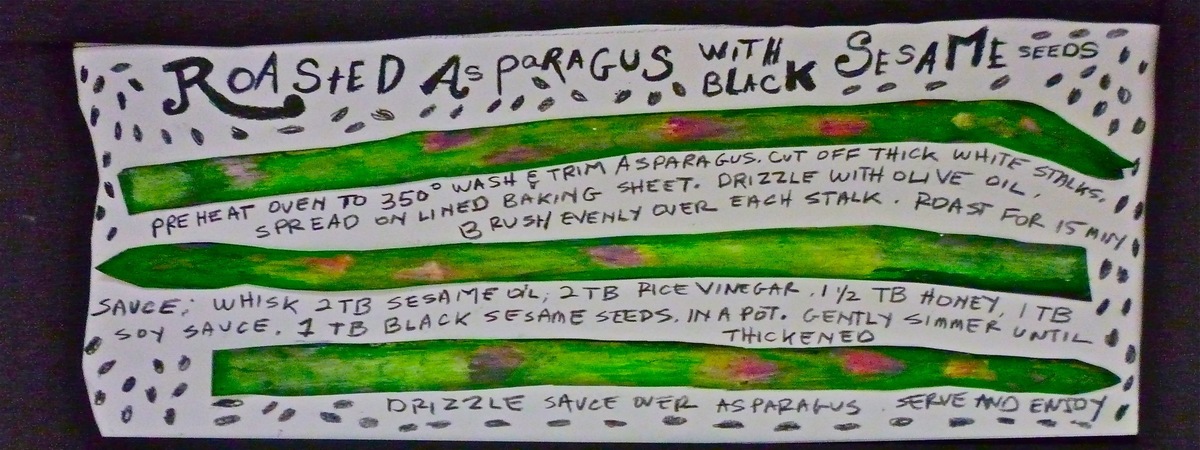 ROASTED ASPARAGUS WITH BLACK SESAME SEEDS
PREHEAT OVEN TO 350° WASH & TRIM ASPARAGUS. CUT OFF THICK WHITE STALKS.
SPREAD ON LINED BAKING SHEET. DRIZZLE WITH OLIVE OIL.
BRUSH EVENLY OVER EACH STALK. ROAST FOR 15 MIN
SAUCE; WHISK 2 TB SESAME OIL, 2 TB RICE VINEGAR. 1 1/2 TB HONEY, 1 TB
SOY SAUCE. 1 TB BLACK SESAME SEEDS. IN A POT. GENTLY SIMMER UNTIL
THICKENED
DRIZZLE SAUCE OVER ASPARAGUS. SERVE AND ENJOY